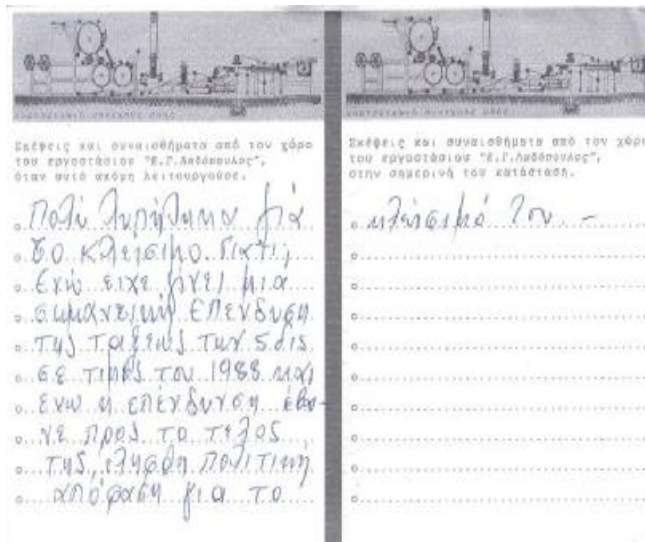 Σκέψεις και συναισθήματα από τον χώρο
του εργοστασίου "Ε.Γ.Λαδόπουλος",
όταν αυτό ακόμη λειτουργούσε.
Πολύ λυπήθηκα για
το κλείσιμο. Γιατί;
Ενώ είχε γίνει μια
σημαντική επένδυση
της τάξεως των 5 δις
σε τιμές του 1988 και
ενώ η επένδυση έβαι-
νε προς το τέλος
της, ελήφθη πολιτική
απόφαση για το
Σκέψεις και συναισθήματα από τον χώρο
του εργοστασίου "Ε.Γ.Λαδόπουλος",
στην σημερινή του κατάσταση.
κλείσιμό του. -